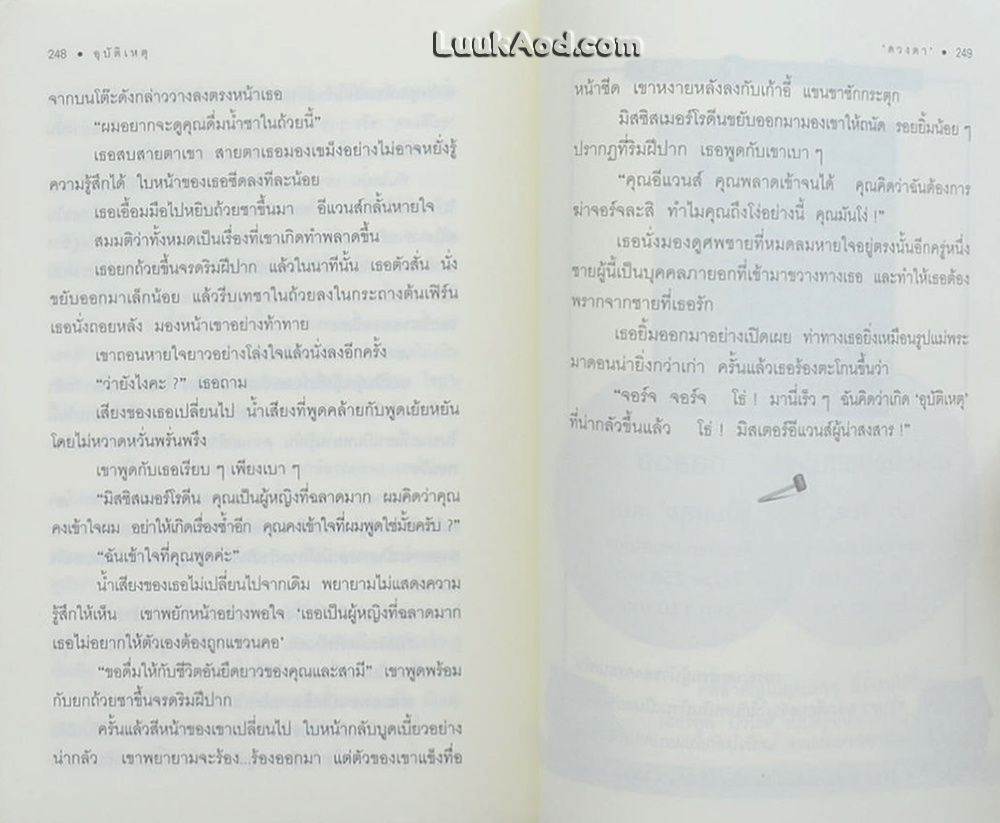 LuukAod.com
248 • อุบัติเหตุ
จากบนโต๊ะดังกล่าววางลงตรงหน้าเธอ
“ผมอยากจะดูคุณดื่มน้ำชาในถ้วยนี้”
เธอสบสายตาเขา สายตาเธอมองเขม็งอย่างไม่อาจหยั่งรู้
ความรู้สึกได้ ใบหน้าของเธอซีดลงทีละน้อย
เธอเอื้อมมือไปหยิบถ้วยชาขึ้นมา อีแวนส์กลั้นหายใจ
สมมติว่าทั้งหมดเป็นเรื่องที่เขาเกิดทำพลาดขึ้น
เธอยกถ้วยขึ้นจรดริมฝีปาก แล้วในนาทีนั้น เธอตัวสั่น นั่ง
ขยับออกมาเล็กน้อย แล้วรีบเทชาในถ้วยลงในกระถางต้นเฟิร์น
เธอนั่งถอยหลัง มองหน้าเขาอย่างท้าทาย
เขาถอนหายใจยาวอย่างโล่งใจแล้วนั่งลงอีกครั้ง
“ว่ายังไงคะ ?” เธอถาม
เสียงของเธอเปลี่ยนไป น้ำเสียงที่พูดคล้ายกับพูดเย้ยหยัน
โดยไม่หวาดหวั่นพรั่นพรึง
เขาพูดกับเธอเรียบ ๆ เพียงเบา ๆ
“มิสซิสเมอร์โรดีน คุณเป็นผู้หญิงที่ฉลาดมาก ผมคิดว่าคุณ
คงเข้าใจผม อย่าให้เกิดเรื่องซ้ำอีก คุณคงเข้าใจที่ผมพูดใช่มั้ยครับ ?”
“ฉันเข้าใจที่คุณพูดค่ะ”
น้ำเสียงของเธอไม่เปลี่ยนไปจากเดิม พยายามไม่แสดงความ
รู้สึกให้เห็น เขาพยักหน้าอย่างพอใจ ‘เธอเป็นผู้หญิงที่ฉลาดมาก
เธอไม่อยากให้ตัวเองต้องถูกแขวนคอ’
“ขอดื่มให้กับชีวิตอันยืดยาวของคุณและสามี” เขาพูดพร้อม
กับยกถ้วยชาขึ้นจรดริมฝีปาก
ครั้นแล้วสีหน้าของเขาเปลี่ยนไป ใบหน้ากลับบูดเบี้ยวอย่าง
น่ากลัว เขาพยายามจะร้อง...ร้องออกมา แต่ตัวของเขาแข็งทื่อ
‘ดวงตา’ • 249
หน้าซีด เขาหงายหลังลงกับเก้าอี้ แขนขาชักกระตุก
มิสซิสเมอร์โรดีนขยับออกมามองเขาให้ถนัด รอยยิ้มน้อย ๆ
ปรากฏที่ริมฝีปาก เธอพูดกับเขาเบา ๆ
“คุณอีแวนส์ คุณพลาดเข้าจนได้ คุณคิดว่าฉันต้องการ
ฆ่าจอร์จละสิ ทำไมคุณถึงโง่อย่างนี้ คุณมันโง่ !”
เธอนั่งมองดูศพชายที่หมดลมหายใจอยู่ตรงนั้นอีกครู่หนึ่ง
ชายผู้นี้เป็นบุคคลภายอกที่เข้ามาขวางทางเธอ และทำให้เธอต้อง
พรากจากชายที่เธอรัก
เธอยิ้มออกมาอย่างเปิดเผย ท่าทางเธอยิ่งเหมือนรูปแม่พระ
มาดอนน่ายิ่งกว่าเก่า ครั้นแล้วเธอร้องตะโกนขึ้นว่า
“จอร์จ จอร์จ โธ่ ! มานี่เร็ว ๆ ฉันคิดว่าเกิด ‘อุบัติเหตุ’
ที่น่ากลัวขึ้นแล้ว โธ่ ! มิสเตอร์อีแวนส์ผู้น่าสงสาร !”